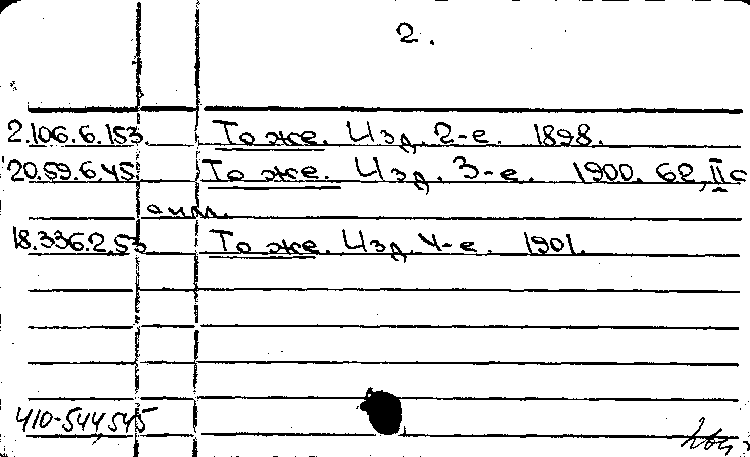 2.
2.106.6.153. То же. Изд. 2-е. 1898.
20.59.6.45. То же. Изд. 3-е. 1900. 62, II с
18.336.2.53 То же. Изд. 4-е. 1901.
410-544,545